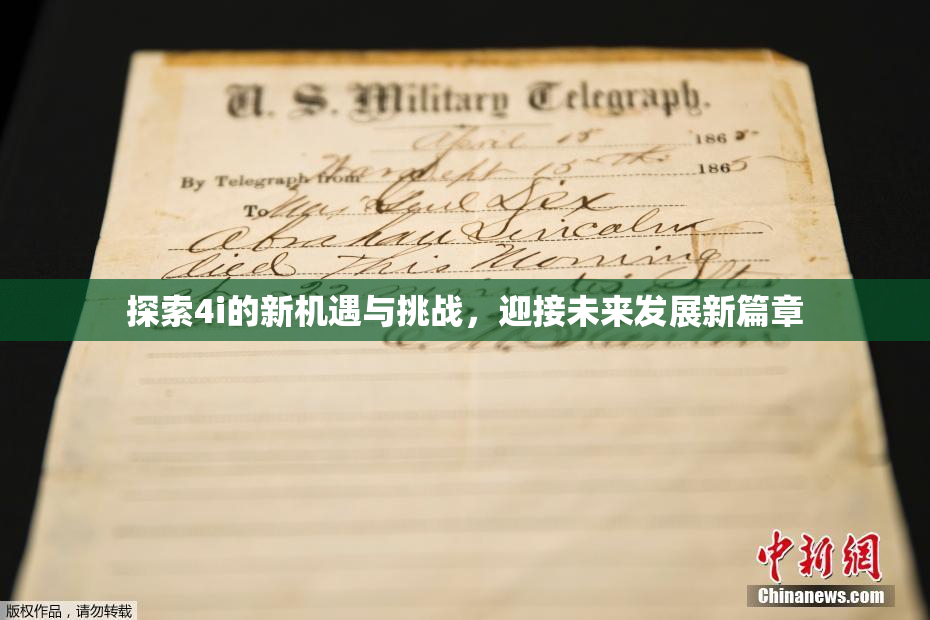 U. S. Military Telegraph.
April 15 1865
By Telegraph from Wash Sept 15th 1865
To Maj Genl Dix
Abraham Lincoln
died This Morning
22 minutes after
探索4i的新机遇与挑战，迎接未来发展新篇章
E. M. Stanton
中新网
Chinanews.com
版权作品，请勿转载